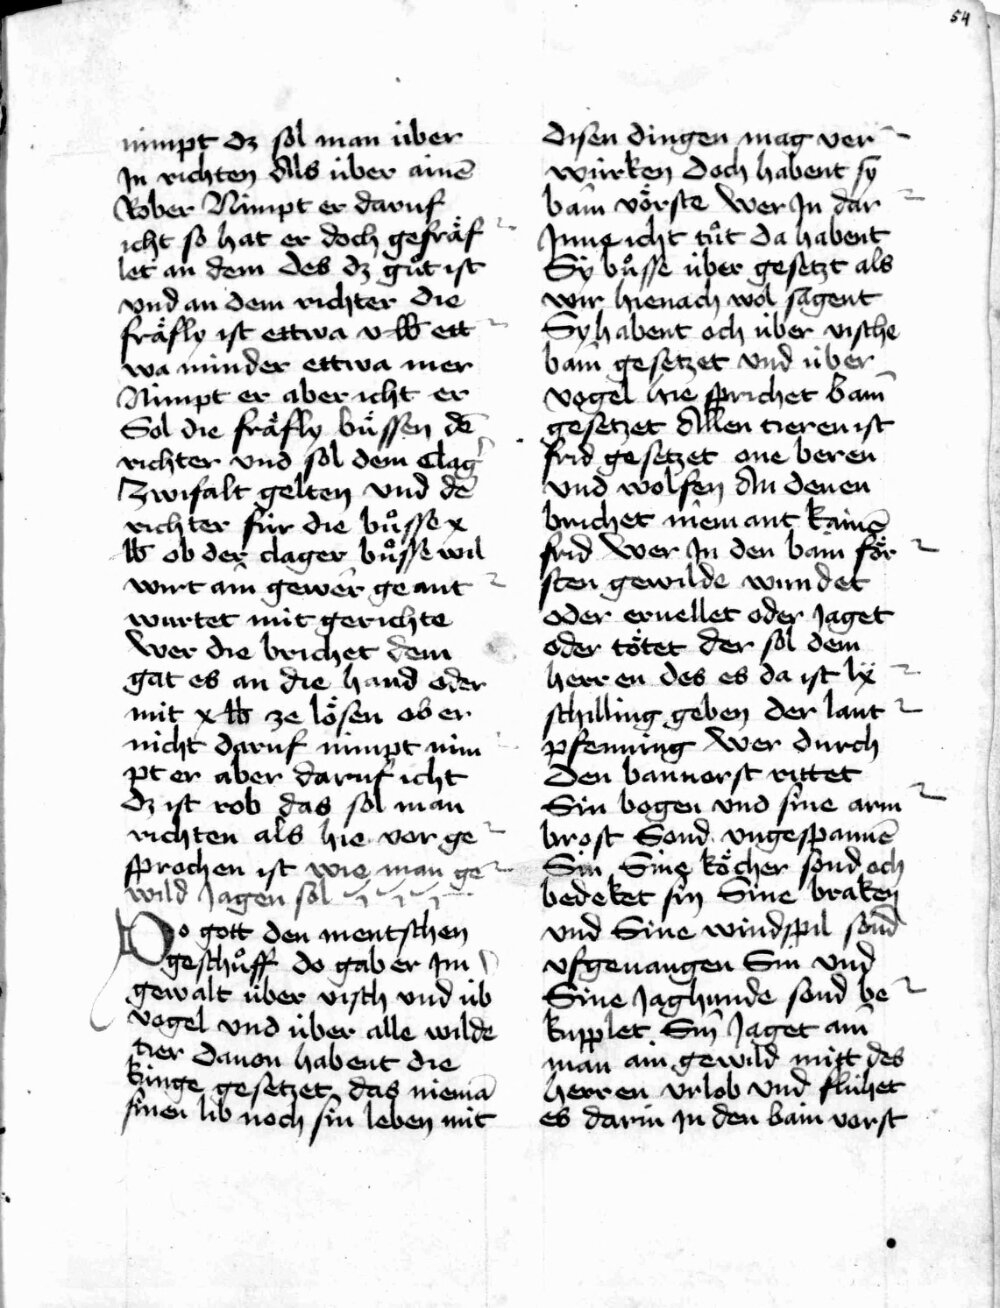 54
nimpt dz sol man über
In richten Als über ainē
Rober Nimpt er daruf
icht so hat er doch gefräf
let an dem des dz gůt ist
vnd an dem richter die
fräfly ist ettwa v lb ett
wa minder ettwa mer
Nimpt er aber icht er
Sol die fräfly büssen dē
richter vnd sol dem Clag
Zwifalt gelten vnd dē
richter für die bůsse x
lb ob der clager bůsse wil
wirt aim gewer geant
wurtet mit gerichte
Wer die brichet dem
gat es an die hand oder
mit x lb ze lösen ob er
nicht daruf nimpt nim
pt er aber daruf icht
dz ist rob das sol man
richten als hie vor ge
sprochen ist wie man ge
wild Jagen sol
Do gott den mentschen
geschůff do gab er Im
gewalt über visch vnd üb
vogel vnd über alle wilde
tier Dauon habent die
künge gesetzet das niemā
sinen lib noch sin leben mit
disen dingen mag ver
würken Doch habent sy
bāin vörste Wer In dar
Inne icht tůt da habent
Sy bůsse über gesetzt als
wir hienach wol sagent
Sy habent och über vische
bāin gesetzet vnd über
vogel Wie sprichet bāin
gesetzet Allen tieren ist
frid gesetzet one beren
vnd wolfen An denen
brichet niemant kainē
frid Wer In den bāin för
sten gewilde wundet
oder eruellet oder Jaget
oder tötet der sol dem
herren des es da ist lx
schilling geben der lant
pfenning Wer durch
Den bannorst rittet
Sin bogen vnd sine arm
brost Sond vngespannē
Sin Sine köcher sond och
bedeket sin Sine braken
vnd Sine windspil sond
vfgeuangen Sin vnd
Sine Jaghunde sond be
kupplet Sin Jaget ain
man ain gewild mitt des
herren vrlob vnd flühet
es darin In den bain vorst